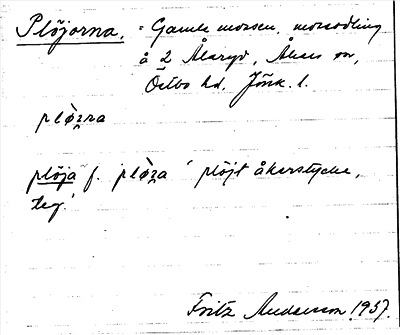 Plöjorna. = Gamle mossen, mossodling
å 2 Ålaryd, Ås sn,
Östbo hd. Jönk. l.
plòʒna
plöja f. plòʒa ´ plöjt åkerstycke,
teg.´
Fritz Andersson 1937.